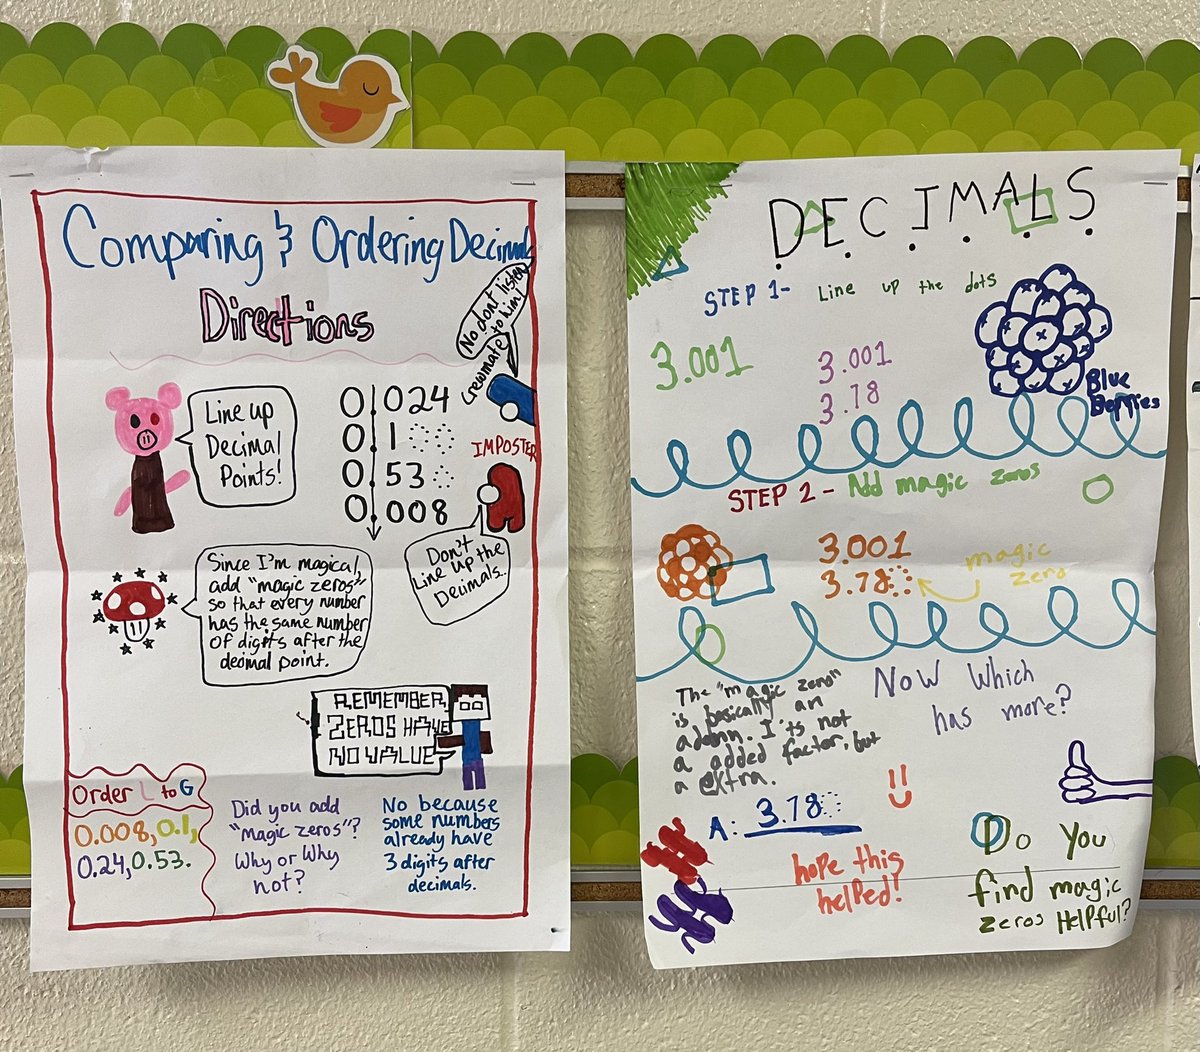 Comparing & Ordering Decimals
Directions
No don't listen
to him!
crewmate
Line up
Decimal
Points!
0.024
0.1
0.53
0.008
IMPOSTER
Don't
Line up the
Decimals.
Since I'm magical,
add "magic zeros"
so that every number
has the same number
of digits after the
decimal point.
REMEMBER
ZEROS HAVE
NO VALUE
Order L to G
0.008, 0.1,
0.24, 0.53.
Did you add
"magic zeros"?
Why or Why
not?
No because
some numbers
already have
3 digits after
decimals.
DECIMALS
STEP 1- Line up the dots
3.001
3.001
3.78
Blue
Berries
STEP 2- Add magic zeros
3.001
3.78
magic
zero
The "magic zero"
is basically an
adonn. I'ts not
a added factor, but
a extra.
Now Which
has more?
A: 3.78
hope this
helped!
Do you
find magic
zeros Helpful?